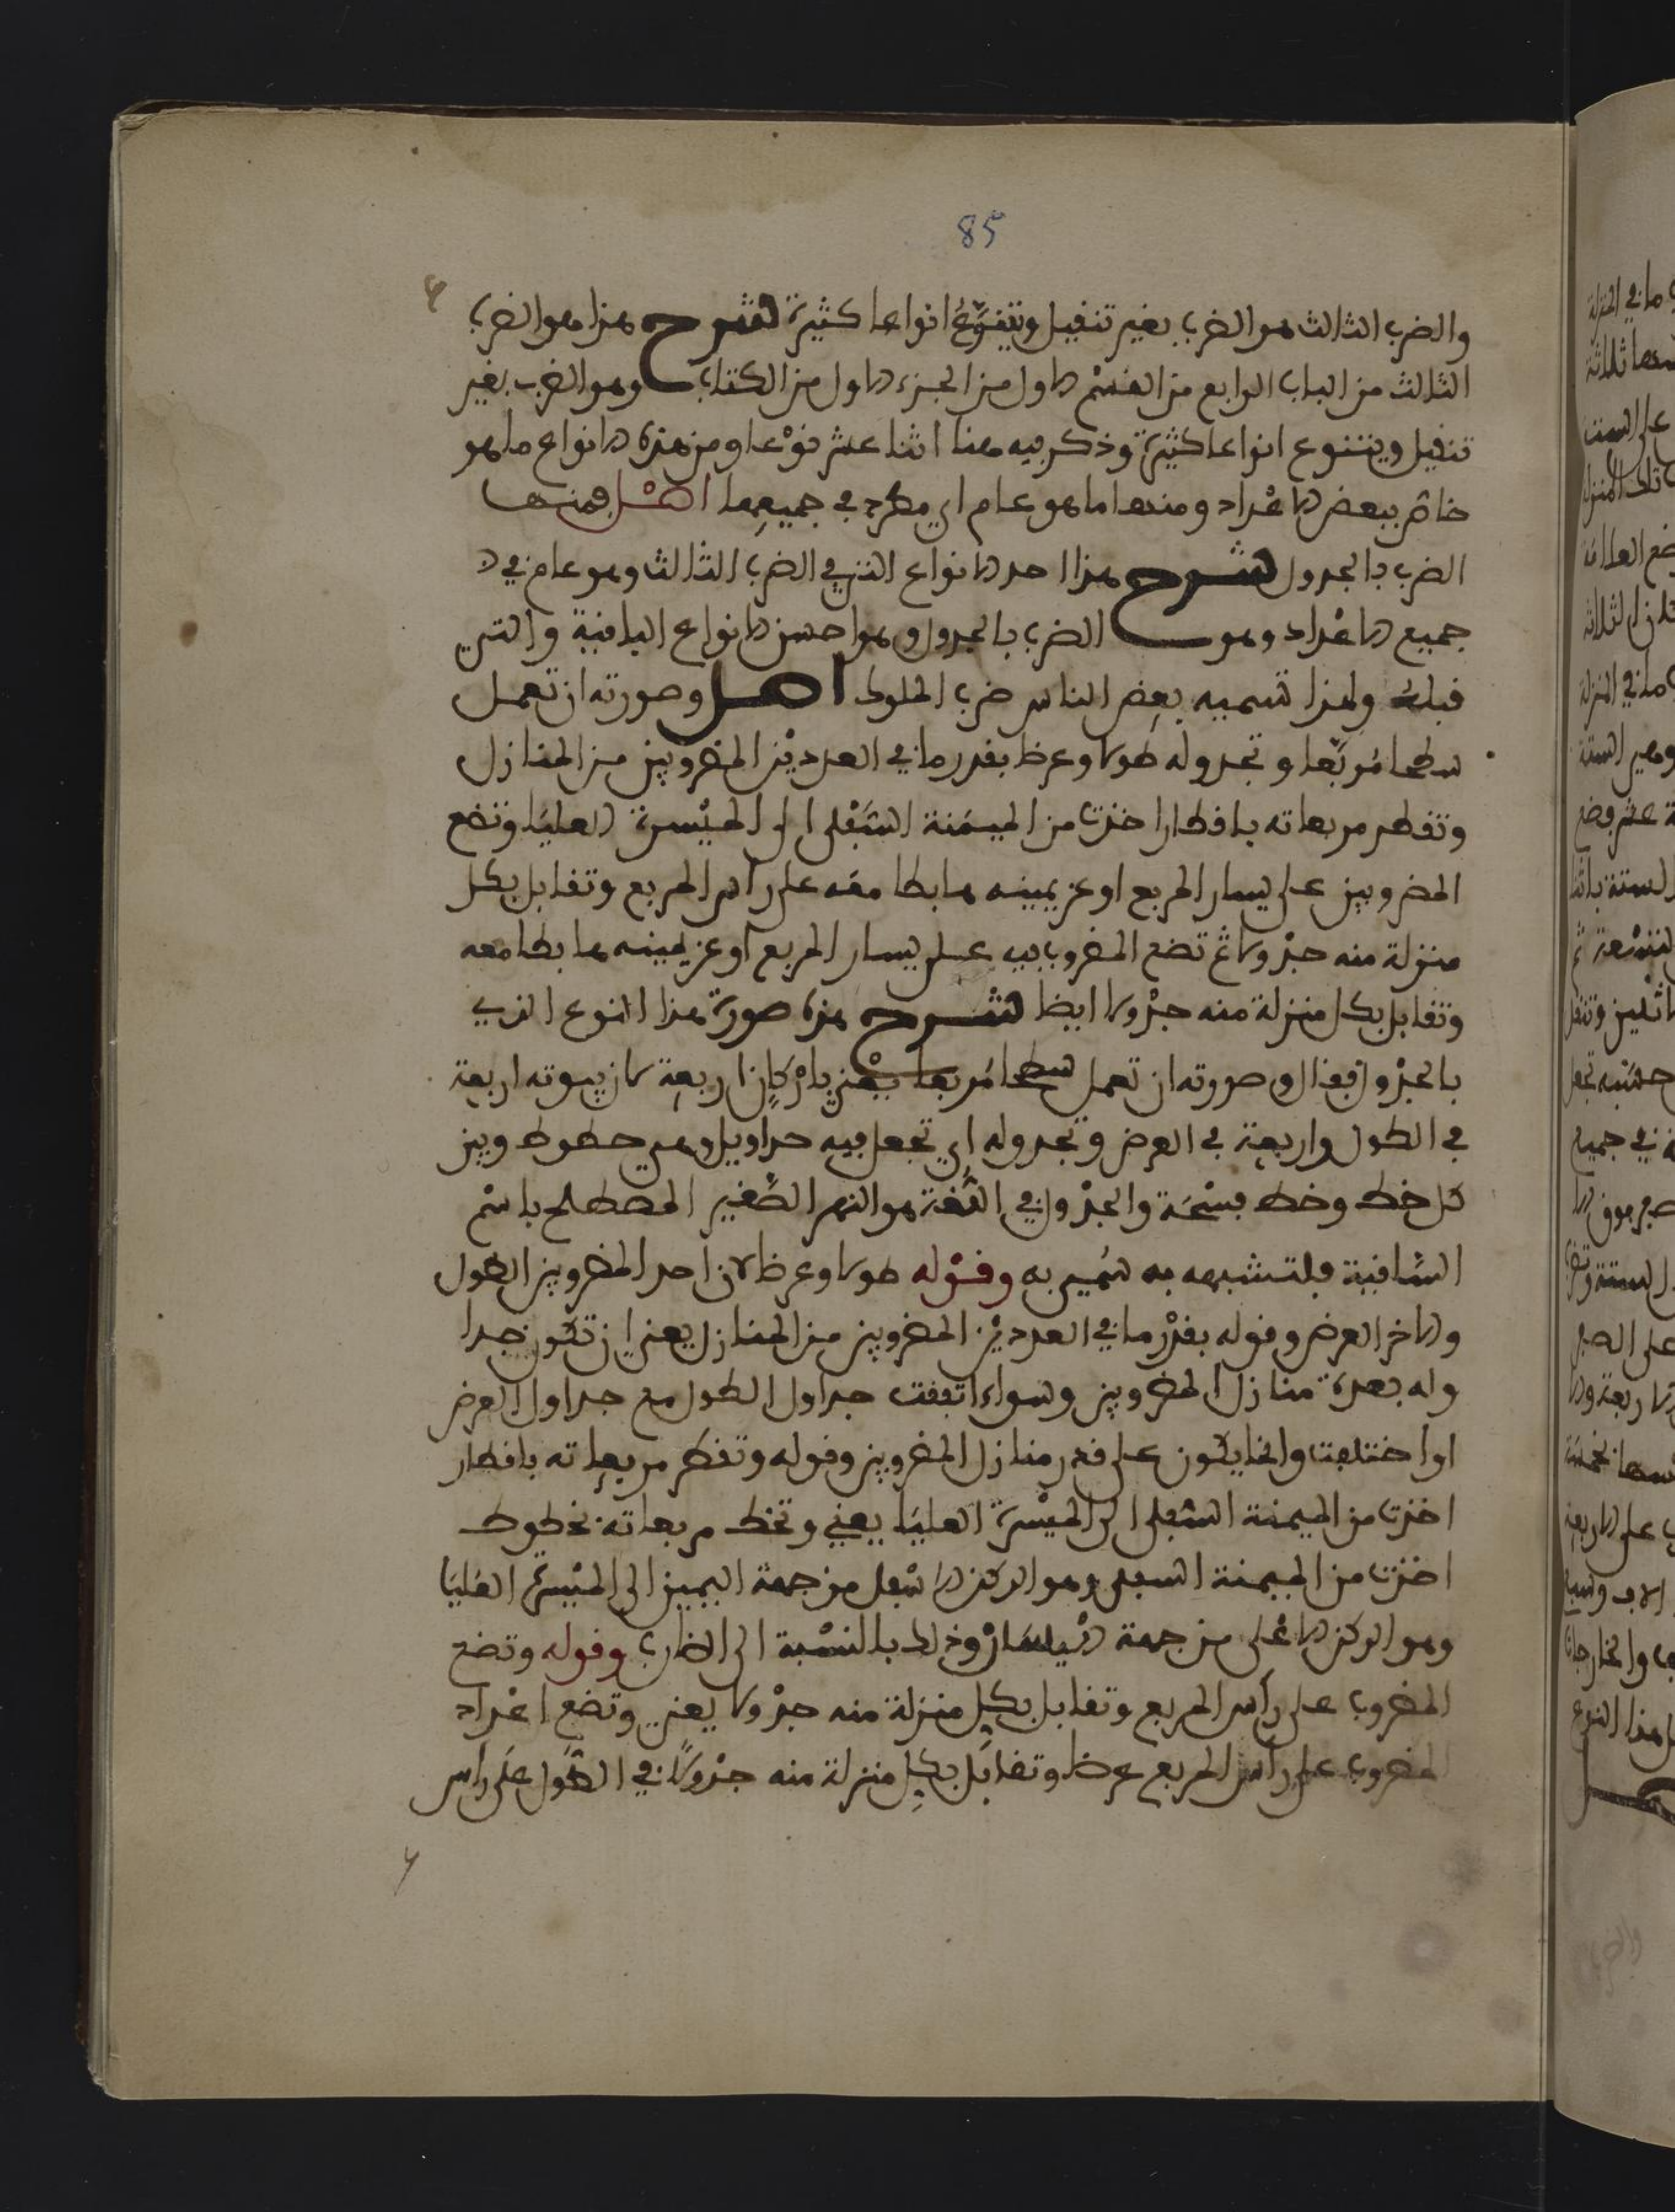 85
والضرب الثالث هو الضرب بغير تنقيل ويتنوع انواعا كثيرة شرح هذا هو الضرب
الثالث من الباب الرابع من القسم الاول من الجزء الاول من الكتاب وهو الضرب بغير
تنقيل ويتنوع انواعا كثيرة وذكر فيه هنا اثنا عشر نوعا ومن هذه الانواع ما هو
خاص ببعض الاعداد ومنها ما هو عام اي مطرد في جميعها اصل فمنها
الضرب بالجدول شرح هذا احد الانواع التي في الضرب الثالث وهو عام في
جميع الاعداد وهو الضرب بالجدول وهو احسن الانواع الباقية والتي
قبله ولهذا تسميه بعض الناس ضرب الملوك اصل وصورته ان تعمل
سطحا مربعا وتجدوله طولا وعرضا بقدر ما في العددين المضروبين من المنازل
وتقطر مربعاته باقطار اخذت من الميمنة السفلى الى الميسرة العليا وتضع
المضروبين على يسار المربع او عن يمينه هابطا معه على راس المربع وتقابل بكل
منزلة منه جدولا ثم تضع المضروب فيه على يسار المربع او عن يمينه هابطا معه
وتقابل بكل منزلة منه جدولا ايضا شرح هذه صورة هذا النوع الذي
بالجدول فقال وصورته ان تعمل سطحا مربعا يعني باركان اربعة كان بيوته اربعة
في الطول واربعة في العرض وتجدوله اي تجعل فيه جداويل وهي خطوط وبين
كل خط وخط فسحة والجدول في اللغة هو النهر الصغير المصطلح باسم
الساقية فلتشبهه به سمي به وقوله طولا وعرضا لان احد المضروبين الطول
والاخر العرض وقوله بقدر ما في العددين المضروبين من المنازل يعني ان تكون جدا
وله بعدة منازل المضروبين وسواء اتفقت جداول الطول مع جداول العرض
او اختلفت وانما يكون على قدر منازل المضروبين وقوله وتقطر مربعاته باقطار
اخذت من الميمنة السفلى الى الميسرة العليا يعني وتخط مربعاته بخطوط
اخذت من الميمنة السفلى وهو الركن الاسفل من جهة اليمين الى الميسرة العليا
وهو الركن الاعلى من جهة اليسار وذلك بالنسبة الى الضارب وقوله وتضع
المضروب على راس المربع وتقابل بكل منزلة منه جدولا يعني وتضع اعداد
المضروب على راس المربع عرضا وتقابل بكل منزلة منه جدولا في الطول على راس